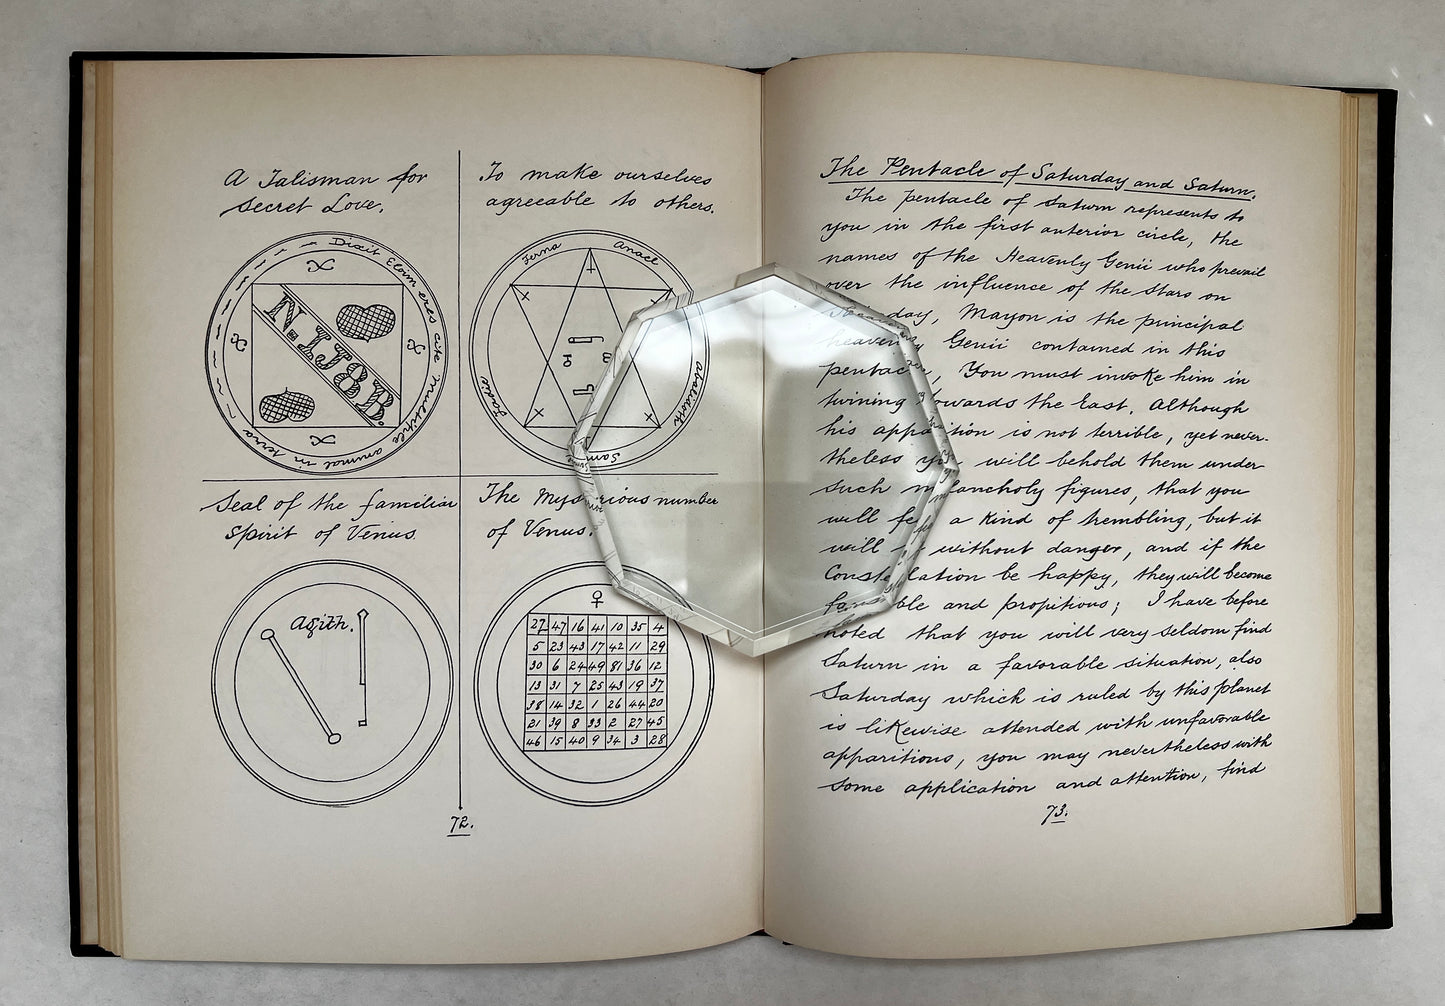 A Talisman for
Secret Love.
Dixit Eloim eres cite
animal in terra
N. IJBB.
To make ourselves
agreeable to others.
Anael
Seal of the familiar
Spirit of Venus.
Agith.
The Mysterious number
of Venus.
♀
27 47 16 41 10 35 4
5 23 43 17 42 11 29
30 6 24 49 81 36 12
13 31 7 25 43 19 37
38 14 32 1 26 44 20
21 39 8 33 2 27 45
46 15 40 9 34 3 28
72.
The Pentacle of Saturday and Saturn.
The pentacle of Saturn represents to
you in the first anterior circle, the
names of the Heavenly Genii who prevail
over the influence of the stars on
day, Mayon is the principal
heavenly Genii contained in this
pentacle, You must invoke him in
turning towards the East. Although
his apparition is not terrible, yet never-
theless you will behold them under
such melancholy figures, that you
will feel a kind of trembling, but it
will without danger, and if the
Constellation be happy, they will become
favorable and propitious; I have before
noted that you will very seldom find
Saturn in a favorable situation, also
Saturday which is ruled by this planet
is likewise attended with unfavorable
apparitions, you may nevertheless with
some application and attention, find
73.